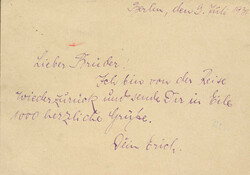 Berlin, den 9. Juli 19
Lieber Bruder!
Ich bin von der Reise
wieder zurück und sende Dir in Eile
1000 herzliche Grüße.
Dein Erich.